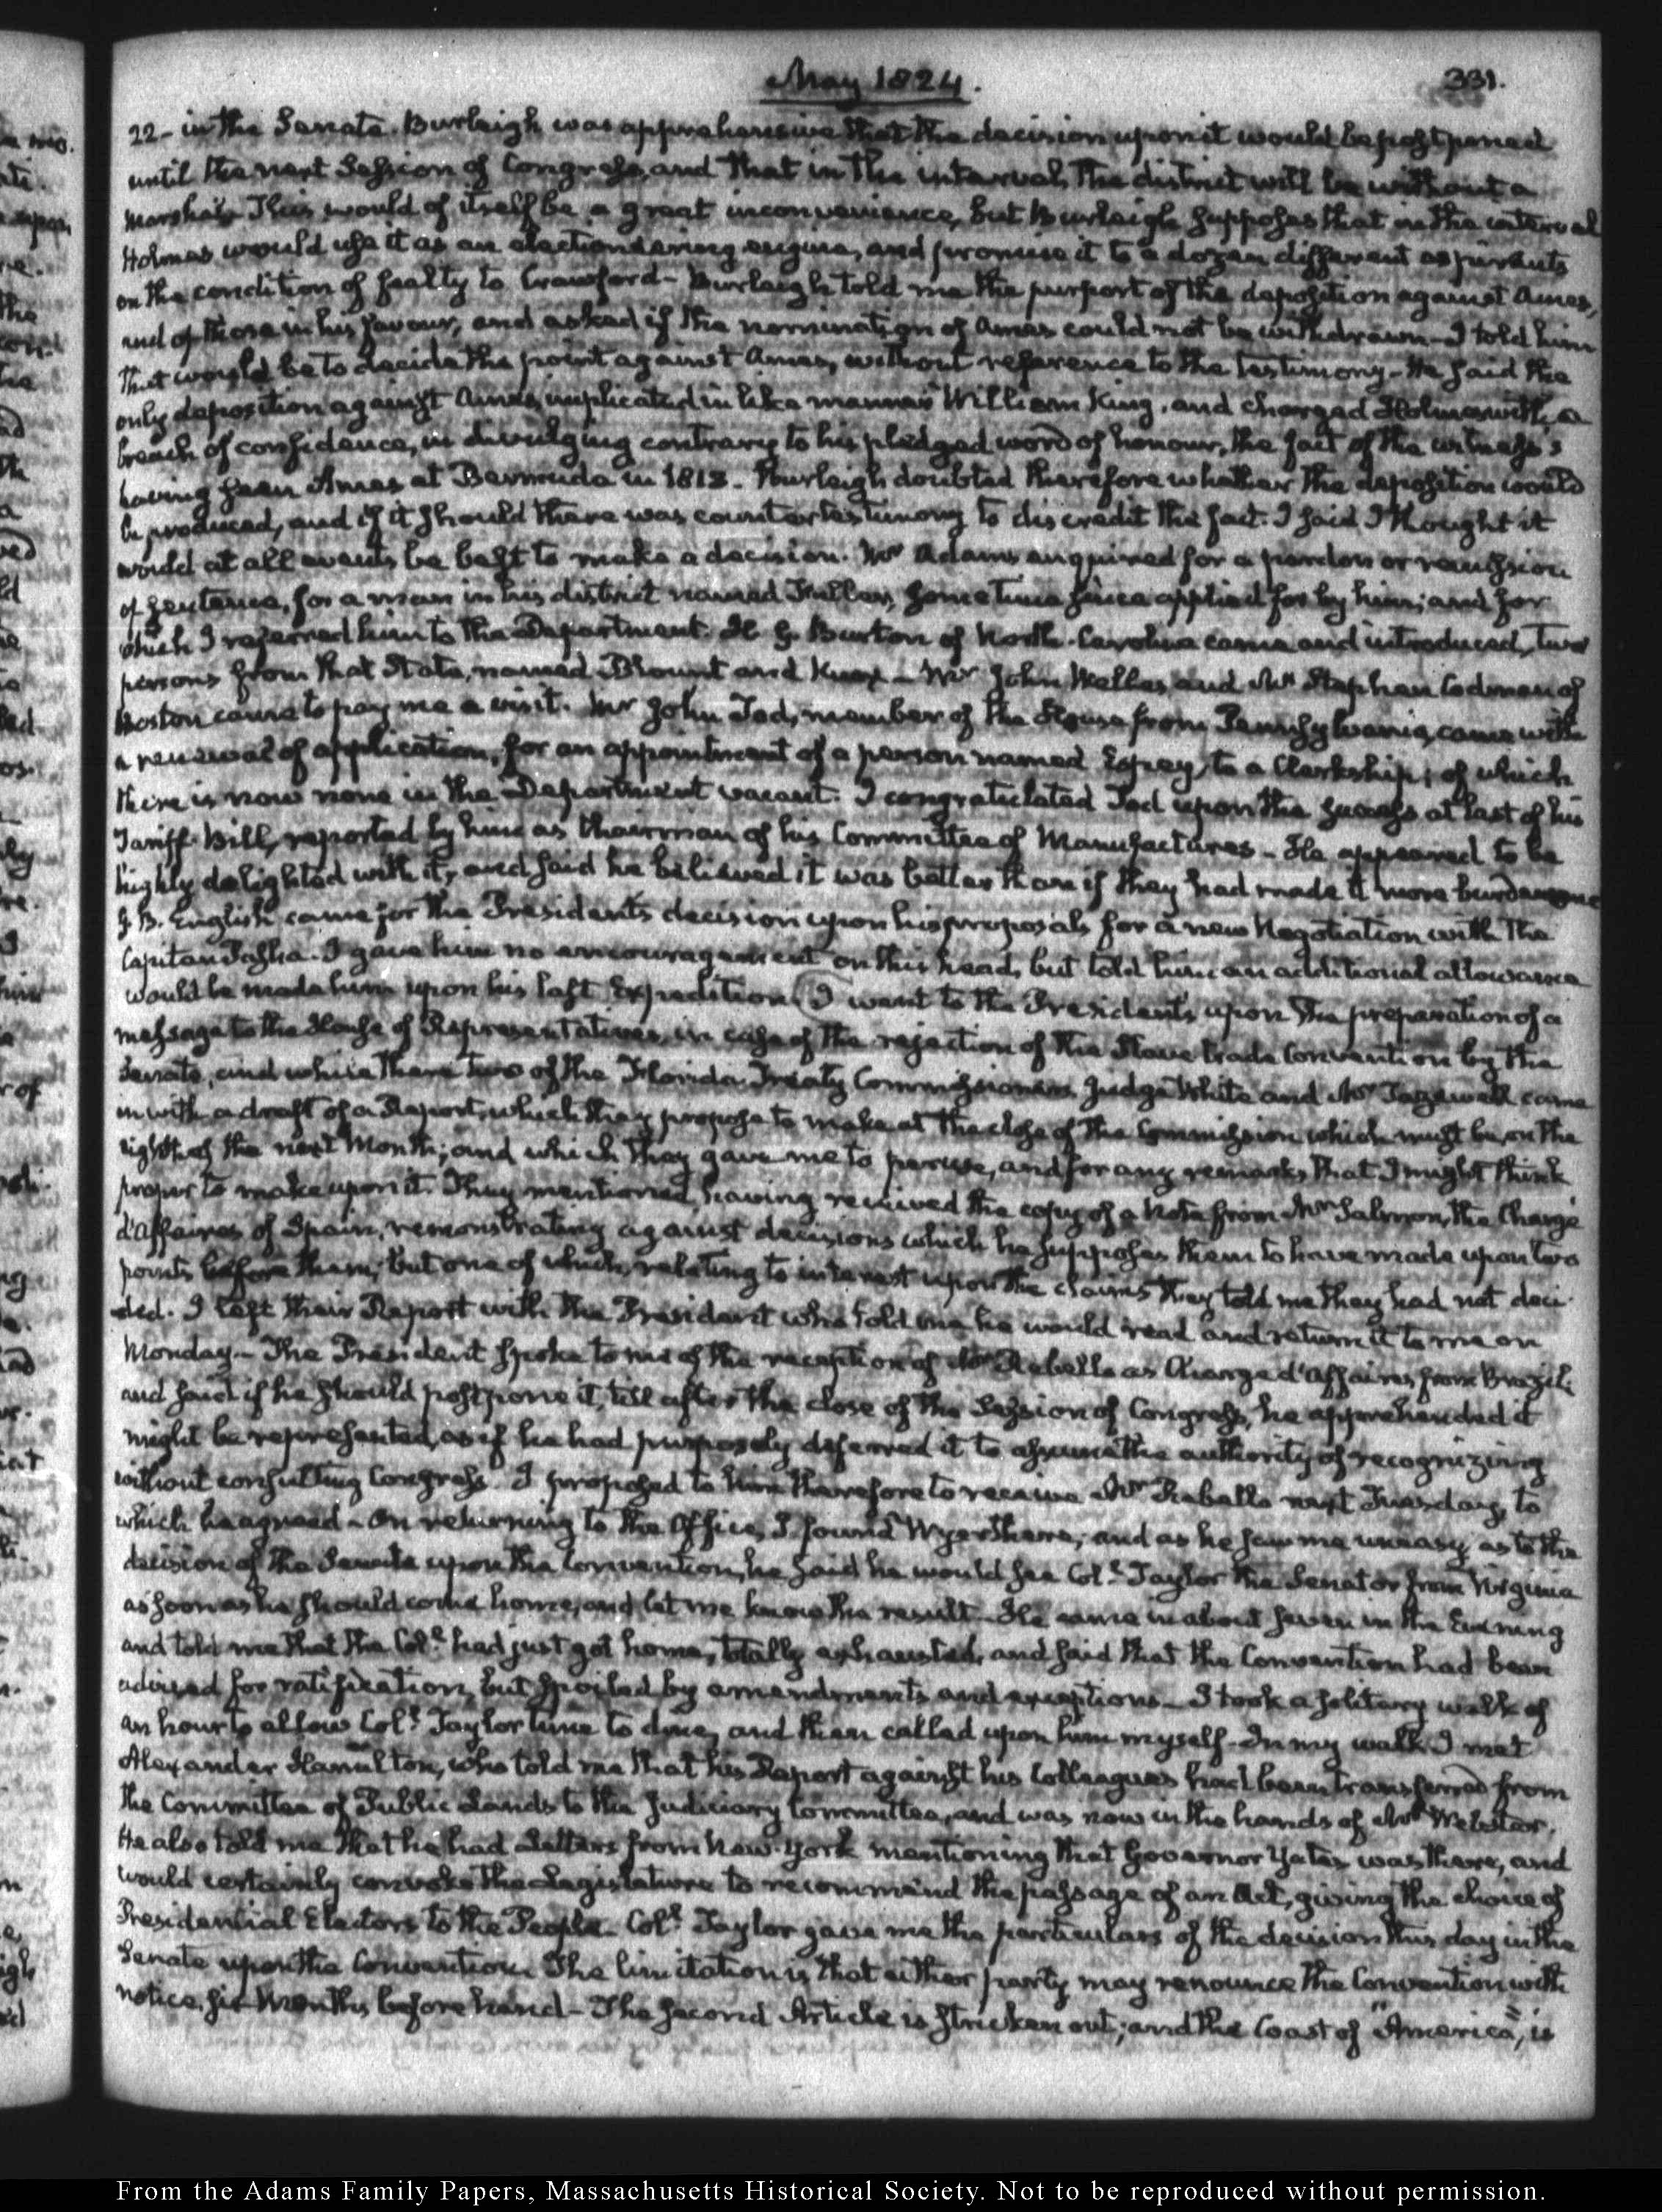 May 1824.
331.
22- in the Senate. Burleigh was apprehensive that the decision upon it would be postponed
until the next Session of Congress, and that in the interval, the district will be without a
Marshal. This would of itself be a great inconvenience, but Burleigh supposes that in the interval
Holmes would use it as an electioneering engine, and promise it to a dozen different aspirants
on the condition of fealty to Crawford- Burleigh told me the purport of the deposition against Ames,
and of those in his favour, and asked if the nomination of Ames could not be withdrawn- I told him
that would be to decide the point against Ames, without reference to the testimony- He said the
only deposition against Ames, implicated in like manner William King, and charged Holmes with a
breach of confidence, in divulging contrary to his pledged word of honour, the fact of the witness's
having seen Ames at Bermuda in 1813. Burleigh doubted therefore whether the deposition would
be produced, and if it should there was counter testimony to discredit the fact. I said I thought it
would at all events be best to make a decision. Mr Adams enquired for a pardon or remission
of sentence, for a man in his district named Fuller, some time since applied for by him; and for
which I referred him to the Department. H. G. Burton of North-Carolina came and introduced, two
persons from that State, named Blount and Knox- Mr John Welles, and Mr Stephen Codman of
Boston came to pay me a visit. Mr John Tod, member of the House from Pennsylvania, came with
a renewal of application, for an appointment of a person named Espey, to a Clerkship; of which
there is now none in the Department vacant. I congratulated Tod upon the success at last of his
Tariff-Bill, reported by him as Chairman of his Committee of Manufactures- He appeared to be
highly delighted with it, and said he believed it was better than if they had made it more burdensome
G. B. English came for the President's decision upon his proposals for a new Negotiation with the
Capitan Pasha. I gave him no encouragement on this head, but told him an additional allowance
would be made him upon his last Expedition. I went to the President's, upon the preparation of a
message to the House of Representatives, in case of the rejection of the Slave trade Convention by the
Senate, and while there two of the Florida Treaty Commissioners Judge White and Mr Tazewell came
in with a draft of a Report, which they propose to make at the close of the Commission which must be on the
eighth of the next Month; and which they gave me to peruse, and for any remarks that I might think
proper to make upon it. They mentioned having received the copy of a Note from Mr Salmon, the Chargé
d'Affaires of Spain, remonstrating against decisions which he supposes them to have made upon two
points before them; but one of which, relating to interest upon the claims they told me they had not deci-
ded. I left their Report with the President who told me he would read and return it to me on
Monday- The President spoke to me of the reception of Mr Rebello as Chargé d'Affaires, from Brazil;
and said if he should postpone it, till after the close of the Session of Congress, he apprehended it
might be represented, as if he had purposely deferred it to assume the authority of recognizing
without consulting Congress. I proposed to him therefore to receive Mr Rebello next Tuesday, to
which he agreed- On returning to the Office, I found Wyer there; and as he saw me uneasy as to the
decision of the Senate upon the Convention, he said he would see Coll. Taylor the Senator from Virginia
as soon as he should come home, and let me know the result- He came in about seven in the Evening
and told me that the Coll. had just got home, totally exhausted, and said that the Convention had been
advised for ratification, but spoiled by amendments and exceptions- I took a solitary walk of
an hour to allow Coll. Taylor time to dine, and then called upon him myself- In my walk I met
Alexander Hamilton, who told me that his Report against his Colleagues had been transferred from
the Committee of Public Lands to the Judiciary Committee, and was now in the hands of Mr Webster.
He also told me that he had Letters from New-York mentioning that Governor Yates was there, and
would certainly convoke the Legislature to recommend the passage of an Act, giving the choice of
Presidential Electors to the People- Coll. Taylor gave me the particulars of the decision this day in the
Senate upon the Convention. The limitation is that either party may renounce the Convention with
notice six Months before hand- The second Article is stricken out; and the Coast of "America", is
From the Adams Family Papers, Massachusetts Historical Society. Not to be reproduced without permission.